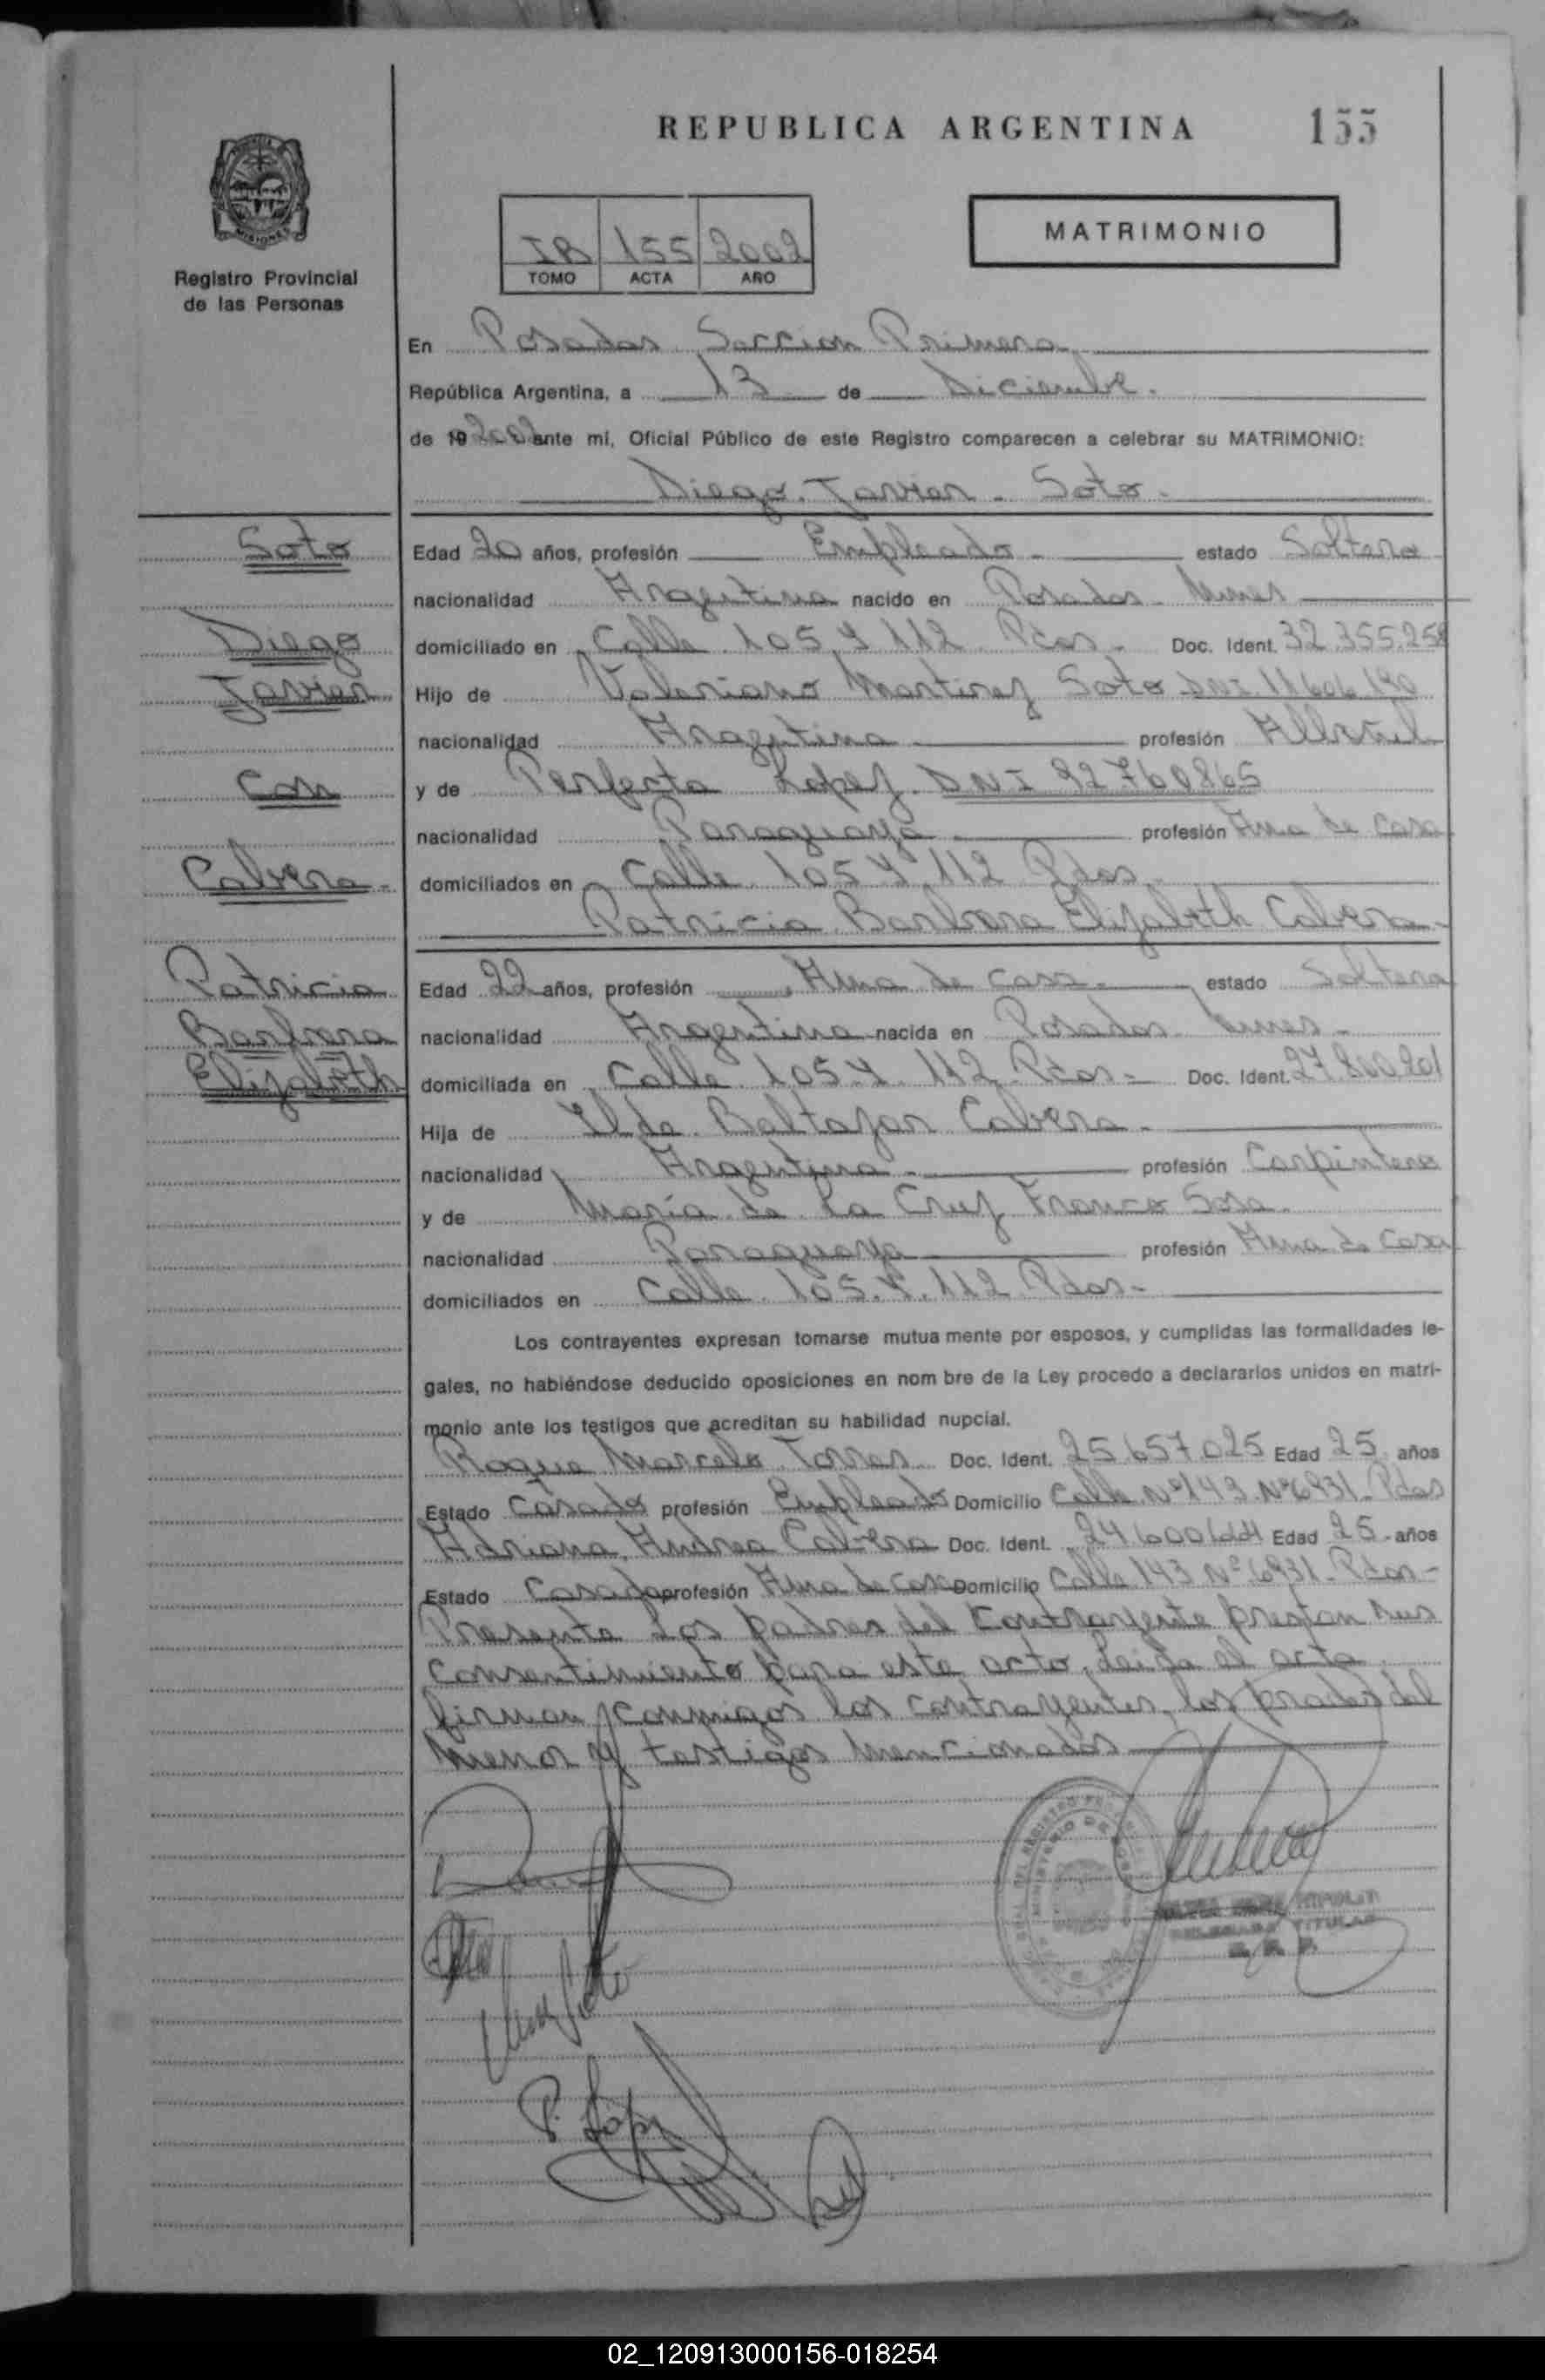 REPUBLICA ARGENTINA
155
MISIONES
Registro Provincial
de las Personas
IB 155 2002
TOMO ACTA AÑO
MATRIMONIO
En Posadas Seccion Primera
República Argentina, a 13 de Diciembre.
de 19 2002 ante mí, Oficial Público de este Registro comparecen a celebrar su MATRIMONIO:
Diego Javier Soto
Soto
Diego
Javier
con
Cabrera
Patricia
Barbara
Elizabeth
Edad 20 años, profesión Empleado estado Soltero
nacionalidad Argentina nacido en Posadas
domiciliado en Calle 105 y 112 Pdas Doc. Ident. 32.355.258
Hijo de Valeriano Martinez Soto DNI 11606190
nacionalidad Argentina profesión Albañil
y de Perfecta Lopez DNI 92760865
nacionalidad Paraguaya profesión Ama de casa
domiciliados en Calle 105 y 112 Pdas
Patricia Barbara Elizabeth Cabrera
Edad 22 años, profesión Ama de casa estado Soltera
nacionalidad Argentina nacida en Posadas
domiciliada en Calle 105 y 112 Pdas Doc. Ident. 27.800201
Hija de Baltazar Cabrera
nacionalidad Argentina profesión Carpintero
y de Maria de la Cruz Franco Sosa
nacionalidad Paraguaya profesión Ama de Casa
domiciliados en Calle 105 y 112 Pdas
Los contrayentes expresan tomarse mutua mente por esposos, y cumplidas las formalidades le-
gales, no habiéndose deducido oposiciones en nom bre de la Ley procedo a declararlos unidos en matri-
monio ante los testigos que acreditan su habilidad nupcial.
Roque Marcelo Torres Doc. Ident. 25.657.025 Edad 25 años
Estado Casado profesión Empleado Domicilio Calle Nº 143 Nº 6931 Pdas
Adriana Andrea Cabrera Doc. Ident. Edad 25 años
Estado Casada profesión Ama de casa Domicilio Calle 143 Nº 6931 Pdas
Presente los padres del Contrayente prestan sus
consentimiento para este acto, leida el acta
firman conmigos los contrayentes, los prades del
menor y testigos mencionados
P. Lopz
TITULAR
02_120913000156-018254